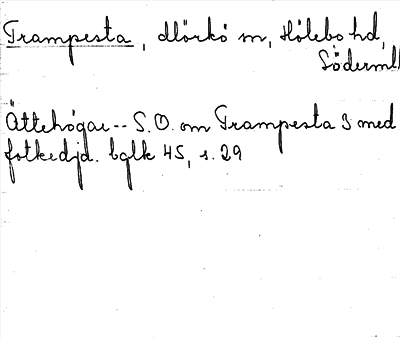 Trampesta, Mörkö sn, Hölebo hd,
Söderml
Ättehögar -- S.O. om Trampesta 3 med
fotkedjd. bglk 45, s. 29